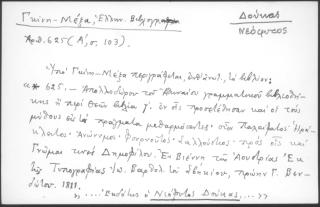 Γκίνη-Μέξα, Ἑλλην. Βιβλιογραφία
Δούκας
Νεόφυτος
Ἀρθ. 625 (Α', σ. 103).
Ὑπὸ Γκίνη-Μέξα περιγράφεται, τὸ βιβλίον:
«* 625. - Ἀπολλοδώρου τοῦ Ἀθηναίου γραμματικοῦ βιβλιοθή-
κης ἢ περὶ θεῶν βιβλία γ'. ἐν οἷς προσετέθησαν καὶ οἱ τοὺς
μύθους εἰς τὰ πράγματα μεθαρμόσαντες· οἷον Παλαίφατος Ἡρά-
κλειτος· Ἀνώνυμοι· Φορνοῦτος· Σαλλούστιος· πρὸς οἷς καὶ
Γνῶμαι τινὲς Δημοφίλου. Ἐν Βιέννῃ τῆς Αὐστρίας Ἐκ
τῆς Τυπογραφίας Ἰω. Βαρθολ. πρώην Γ. Βεν-
δώτου. 1811.
», .... Ἐκδότης ὁ Νεόφυτος Δούκας, ... »